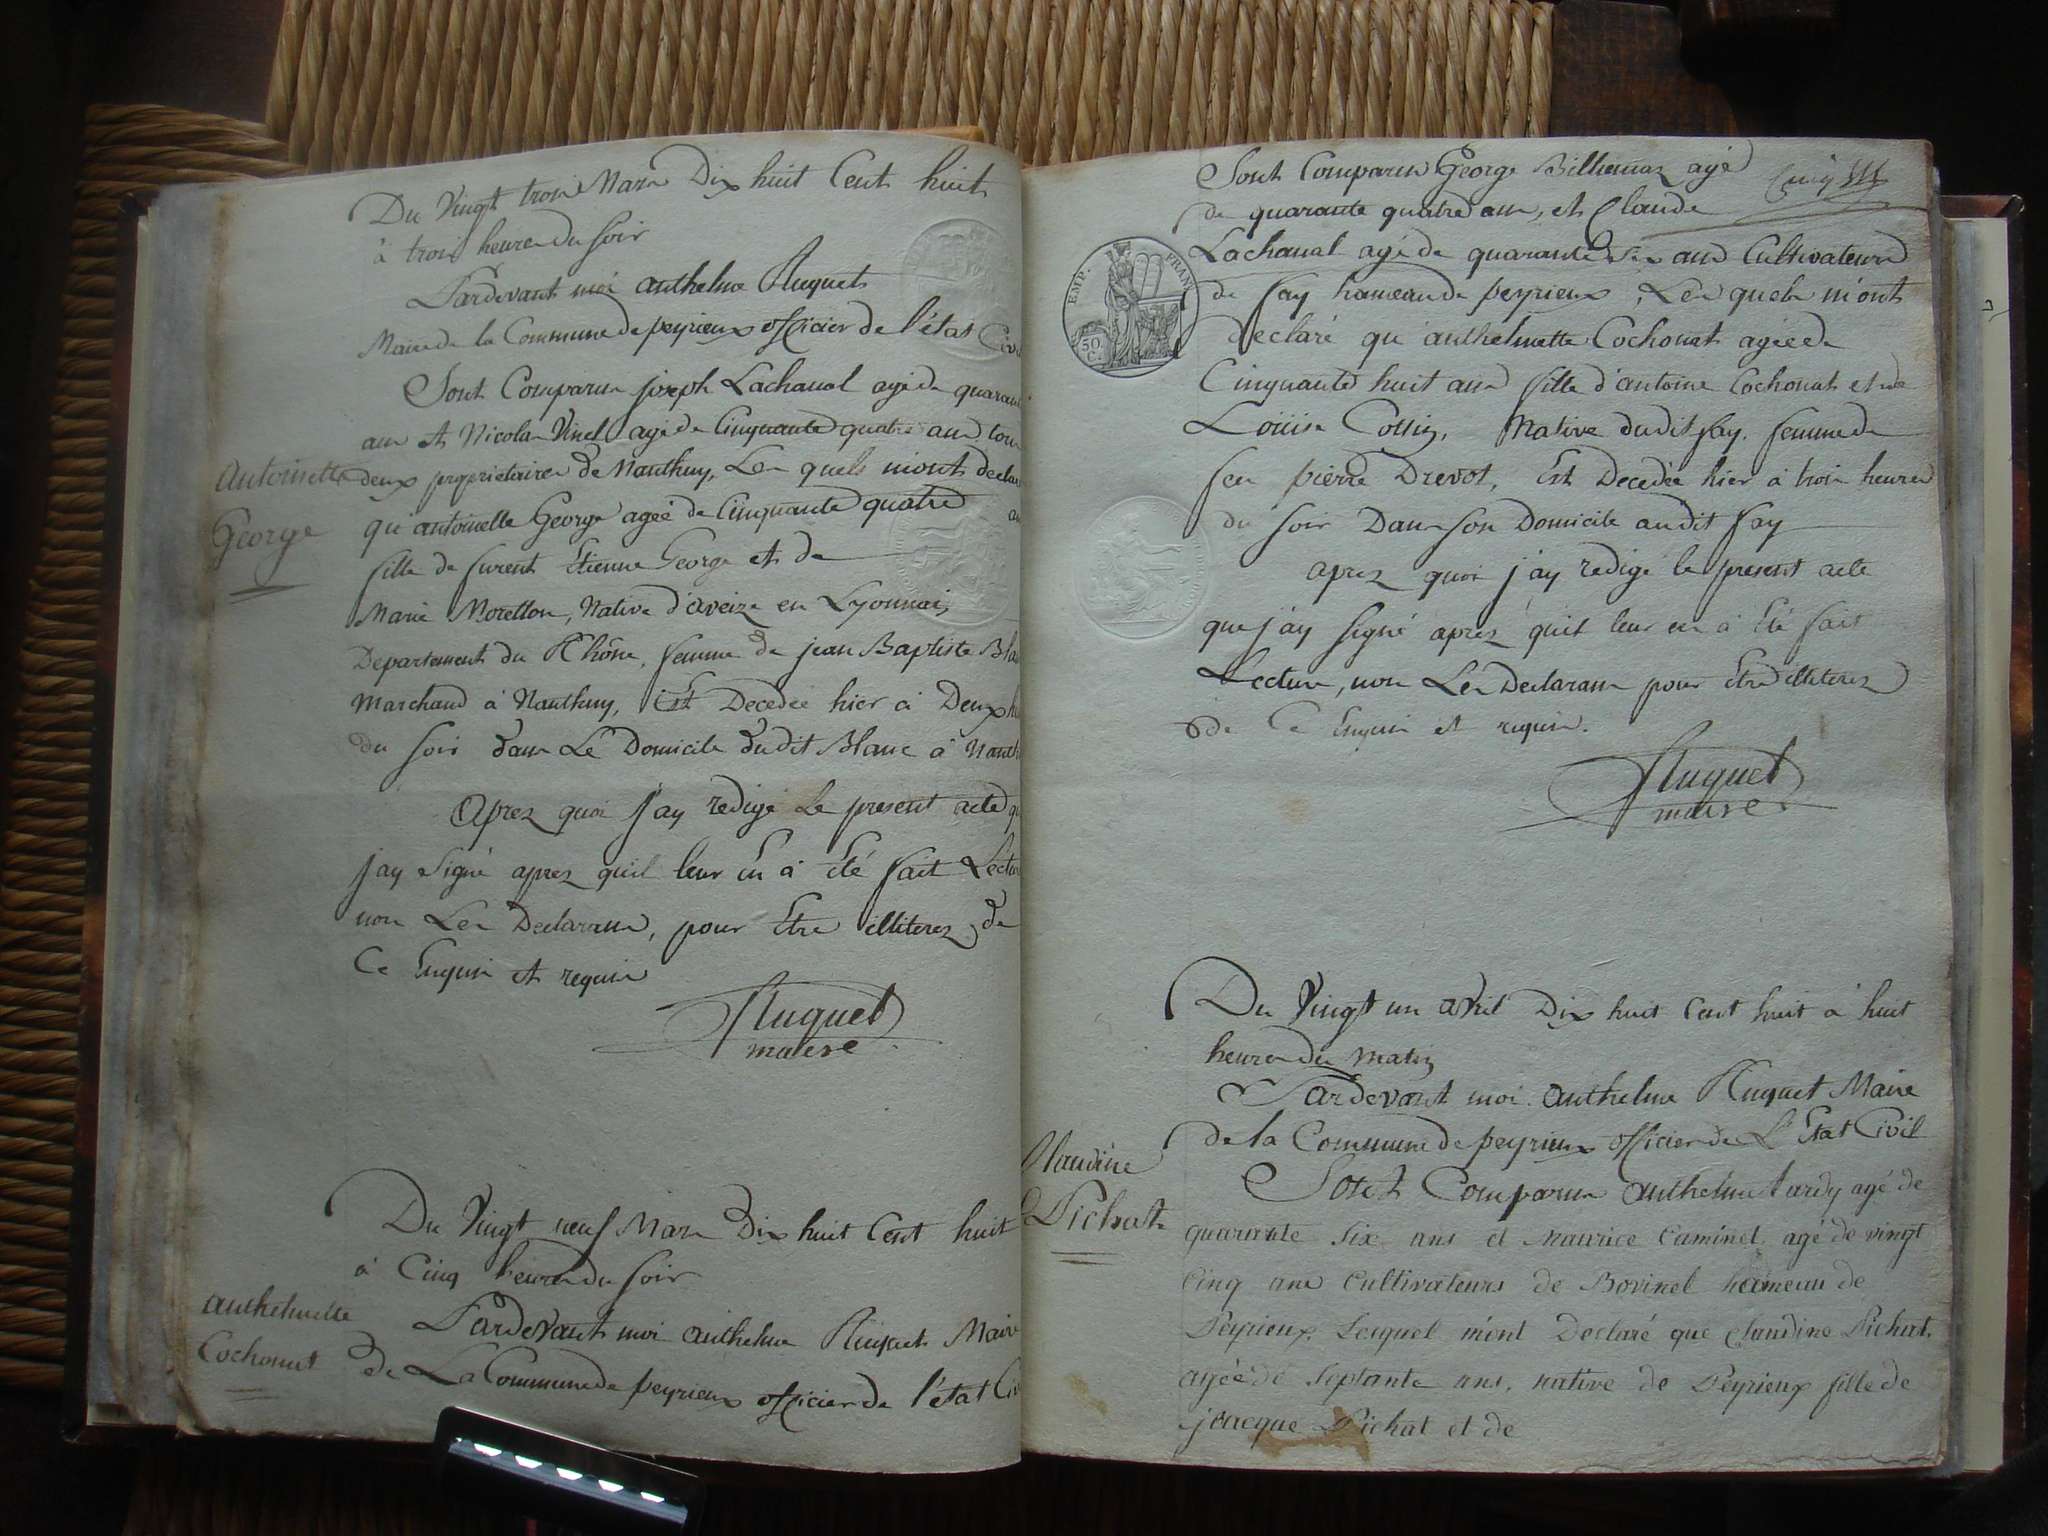 Du Vingt trois Mars Dix huit Cent huit
à trois heures du soir
Pardevant moi anthelme Ruquet
Maire de la Commune de peyrieux officier de l'état Civil
Sont Comparus joseph Lachaval agé de quarante
ans et Nicolas Vinel agé de Cinquante quatre ans tous
deux proprietaires de Nanthuy, Les quels m'ont declaré
qu'antoinette George ageé de Cinquante quatre ans
fille de furent Etienne George et de
Marie Morellon, Native d'aveize en Lyonnais
Departement du Rhône, femme de jean Baptiste Blanc
Marchand à Nanthuy, Est Decedée hier à Deux h
du soir dans Le Domicile dudit Blanc à Nanth
Aprez quoi j'ay redigé Le present acte que
j'ay signé aprez qu'il leur en à été fait Lecture
non Les Declarans, pour Etre illiterez de
Ce Enquis et requis
Ruquet
maire
Antoinette
George
Du Vingt neuf Mars Dix huit Cent huit
à Cinq heures du soir
Pardevant moi anthelme Ruquet Maire
de La Commune de peyrieux officier de l'état Civ
anthelmette
Cochonat
Cinq
Sont Comparus George Billiemaz agé
de quarante quatre ans, et Claude
Lachaval agé de quarante six ans Cultivateurs
de fay hameau de peyrieux, Les quels m'ont
declaré qu'anthelmette Cochonat ageé de
Cinquante huit ans fille d'antoine Cochonat et de
Loüise Collin, Native dudit fay, femme de
feu pierre Drevot, Est Decedée hier à trois heures
du soir Dans son Domicile audit fay
aprez quoi j'ay redigé le present acte
que j'ay signé aprez qu'il leur en à Eté fait
Lecture, non Les Declarans pour Etre illiterez
de Ce Enquis et requis.
Ruquet
maire
EMP. FRAN.
50 C.
Du Vingt un avril Dix huit Cent huit à huit
heures du matin
Pardevant moi anthelme Ruquet Maire
de la Commune de peyrieux officier de L'Etat Civil
Sont Comparus anthelme tardy agé de
quarante six ans et Maurice Caminet agé de vingt
cinq ans Cultivateurs de Bovinel hameau de
Peyrieux, Lesquel m'ont Declaré que Claudine Pichat
ageé de septante ans, native de Peyrieux fille de
jacque Pichat et de
Claudine
Pichat